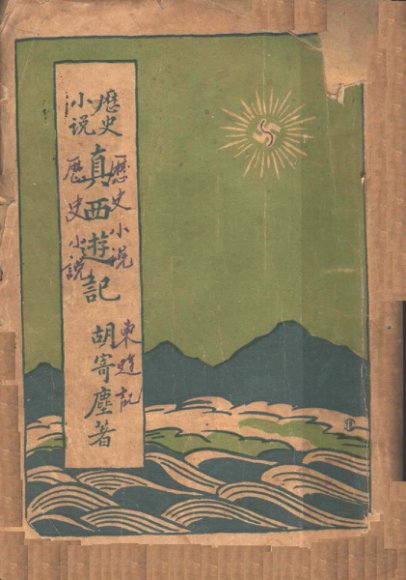 歷史
小说
真西遊記
胡寄塵著
歷史小说
東遊記
歷史小說